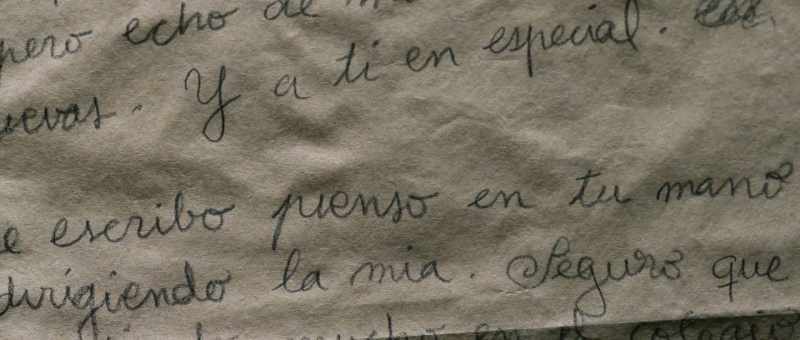 pero echo de
uevas. Y a ti en especial.
e escribo pienso en tu mano
dirigiendo la mia. Seguro que
mucho en el colegio